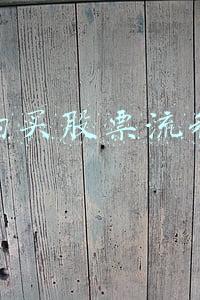 买股票流